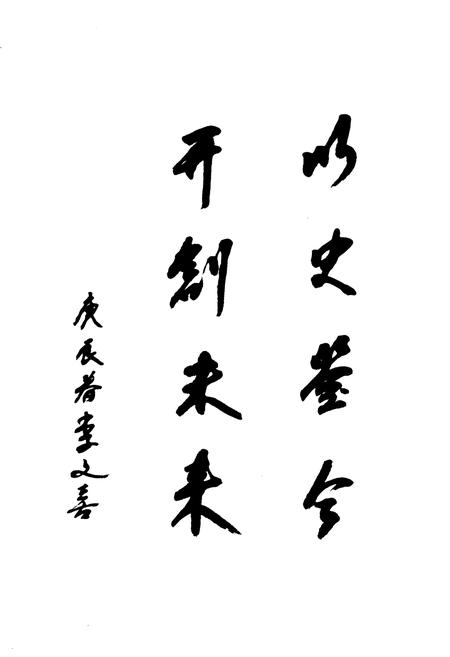 以史鉴今
开创未来
庚辰春李文喜